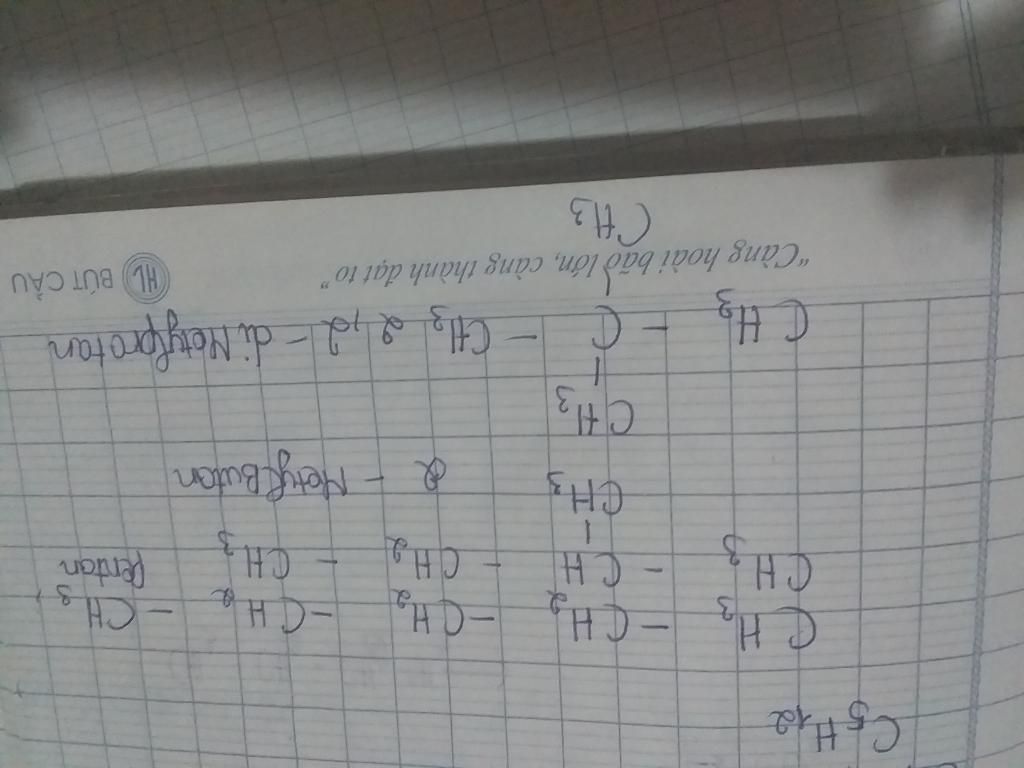 C5H12
CH3 - CH2 - CH2 - CH2 - CH3
Pentan
CH3 - CH - CH2 - CH3
CH3 2 - MetylButan
CH3
CH3 - C - CH3 2,2 - diMetylprotan
"Càng hoài bão lớn, càng thành đạt to" HL BÚT CẦU
CH3